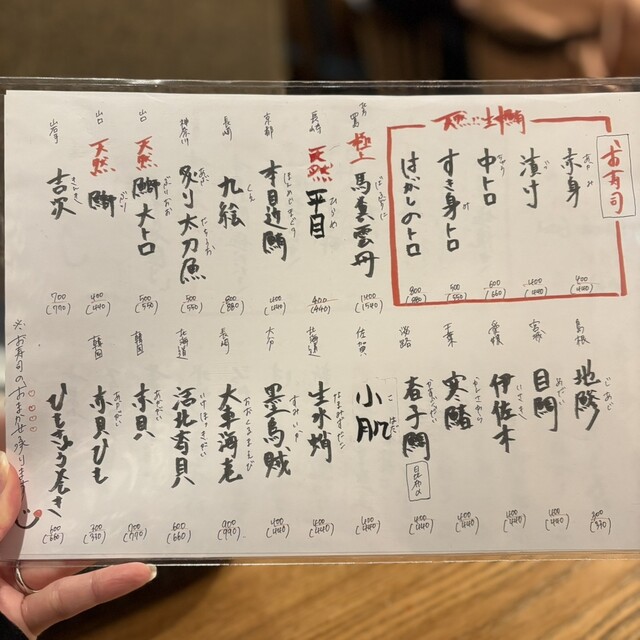 お寿司
天然生鮪
赤身 あかみ 400 (440)
漬け づけ 400 (440)
中トロ 600 (660)
すき身トロ 500 (550)
はがしのトロ 800 (880)
極上 馬糞雲丹 1400 (1540)
長崎 天然 平目 ひらめ 400 (440)
京都 本目近鯛 400 (440)
長崎 九絵 くえ 800 (880)
神奈川 炙り太刀魚 あぶりたちうお 500 (550)
天然 鰤大トロ 500 (550)
天然 鰤 ぶり 400 (440)
吉次 きんき 700 (770)
島根 地鯵 じあじ 300 (330)
宮城 目鯛 めだい 400 (440)
愛媛 伊佐木 いさき 400 (440)
千葉 寒鰆 400 (440)
淡路 春子鯛 かすごだい 昆布〆 400 (440)
佐賀 小肌 こはだ 400 (440)
北海道 生水蛸 なまみずだこ 400 (440)
大分 墨烏賊 すみいか 400 (440)
長崎 大車海老 おおくるまえび 900 (990)
北海道 活北寄貝 いけほっきがい 600 (660)
韓国 赤貝 あかがい 700 (770)
韓国 赤貝ひも 300 (330)
ひもきゅう巻き 600 (660)
※お寿司のおまかせ承ります